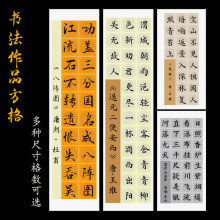 书法作品方格
多种尺寸格数可选
功盖三分国名成八阵图
江流石不转遗恨失吞吴
《八阵图》唐朝·杜甫
渭城朝雨浥轻尘客舍青青柳
色新劝君更尽一杯酒西出阳
关无故人
《送元二使安西》唐王维
空山不见人但闻人
语响返景入深林复
照青苔上
日照香炉生紫烟遥
看瀑布挂前川飞流
直下三千尺疑是银
河落九天